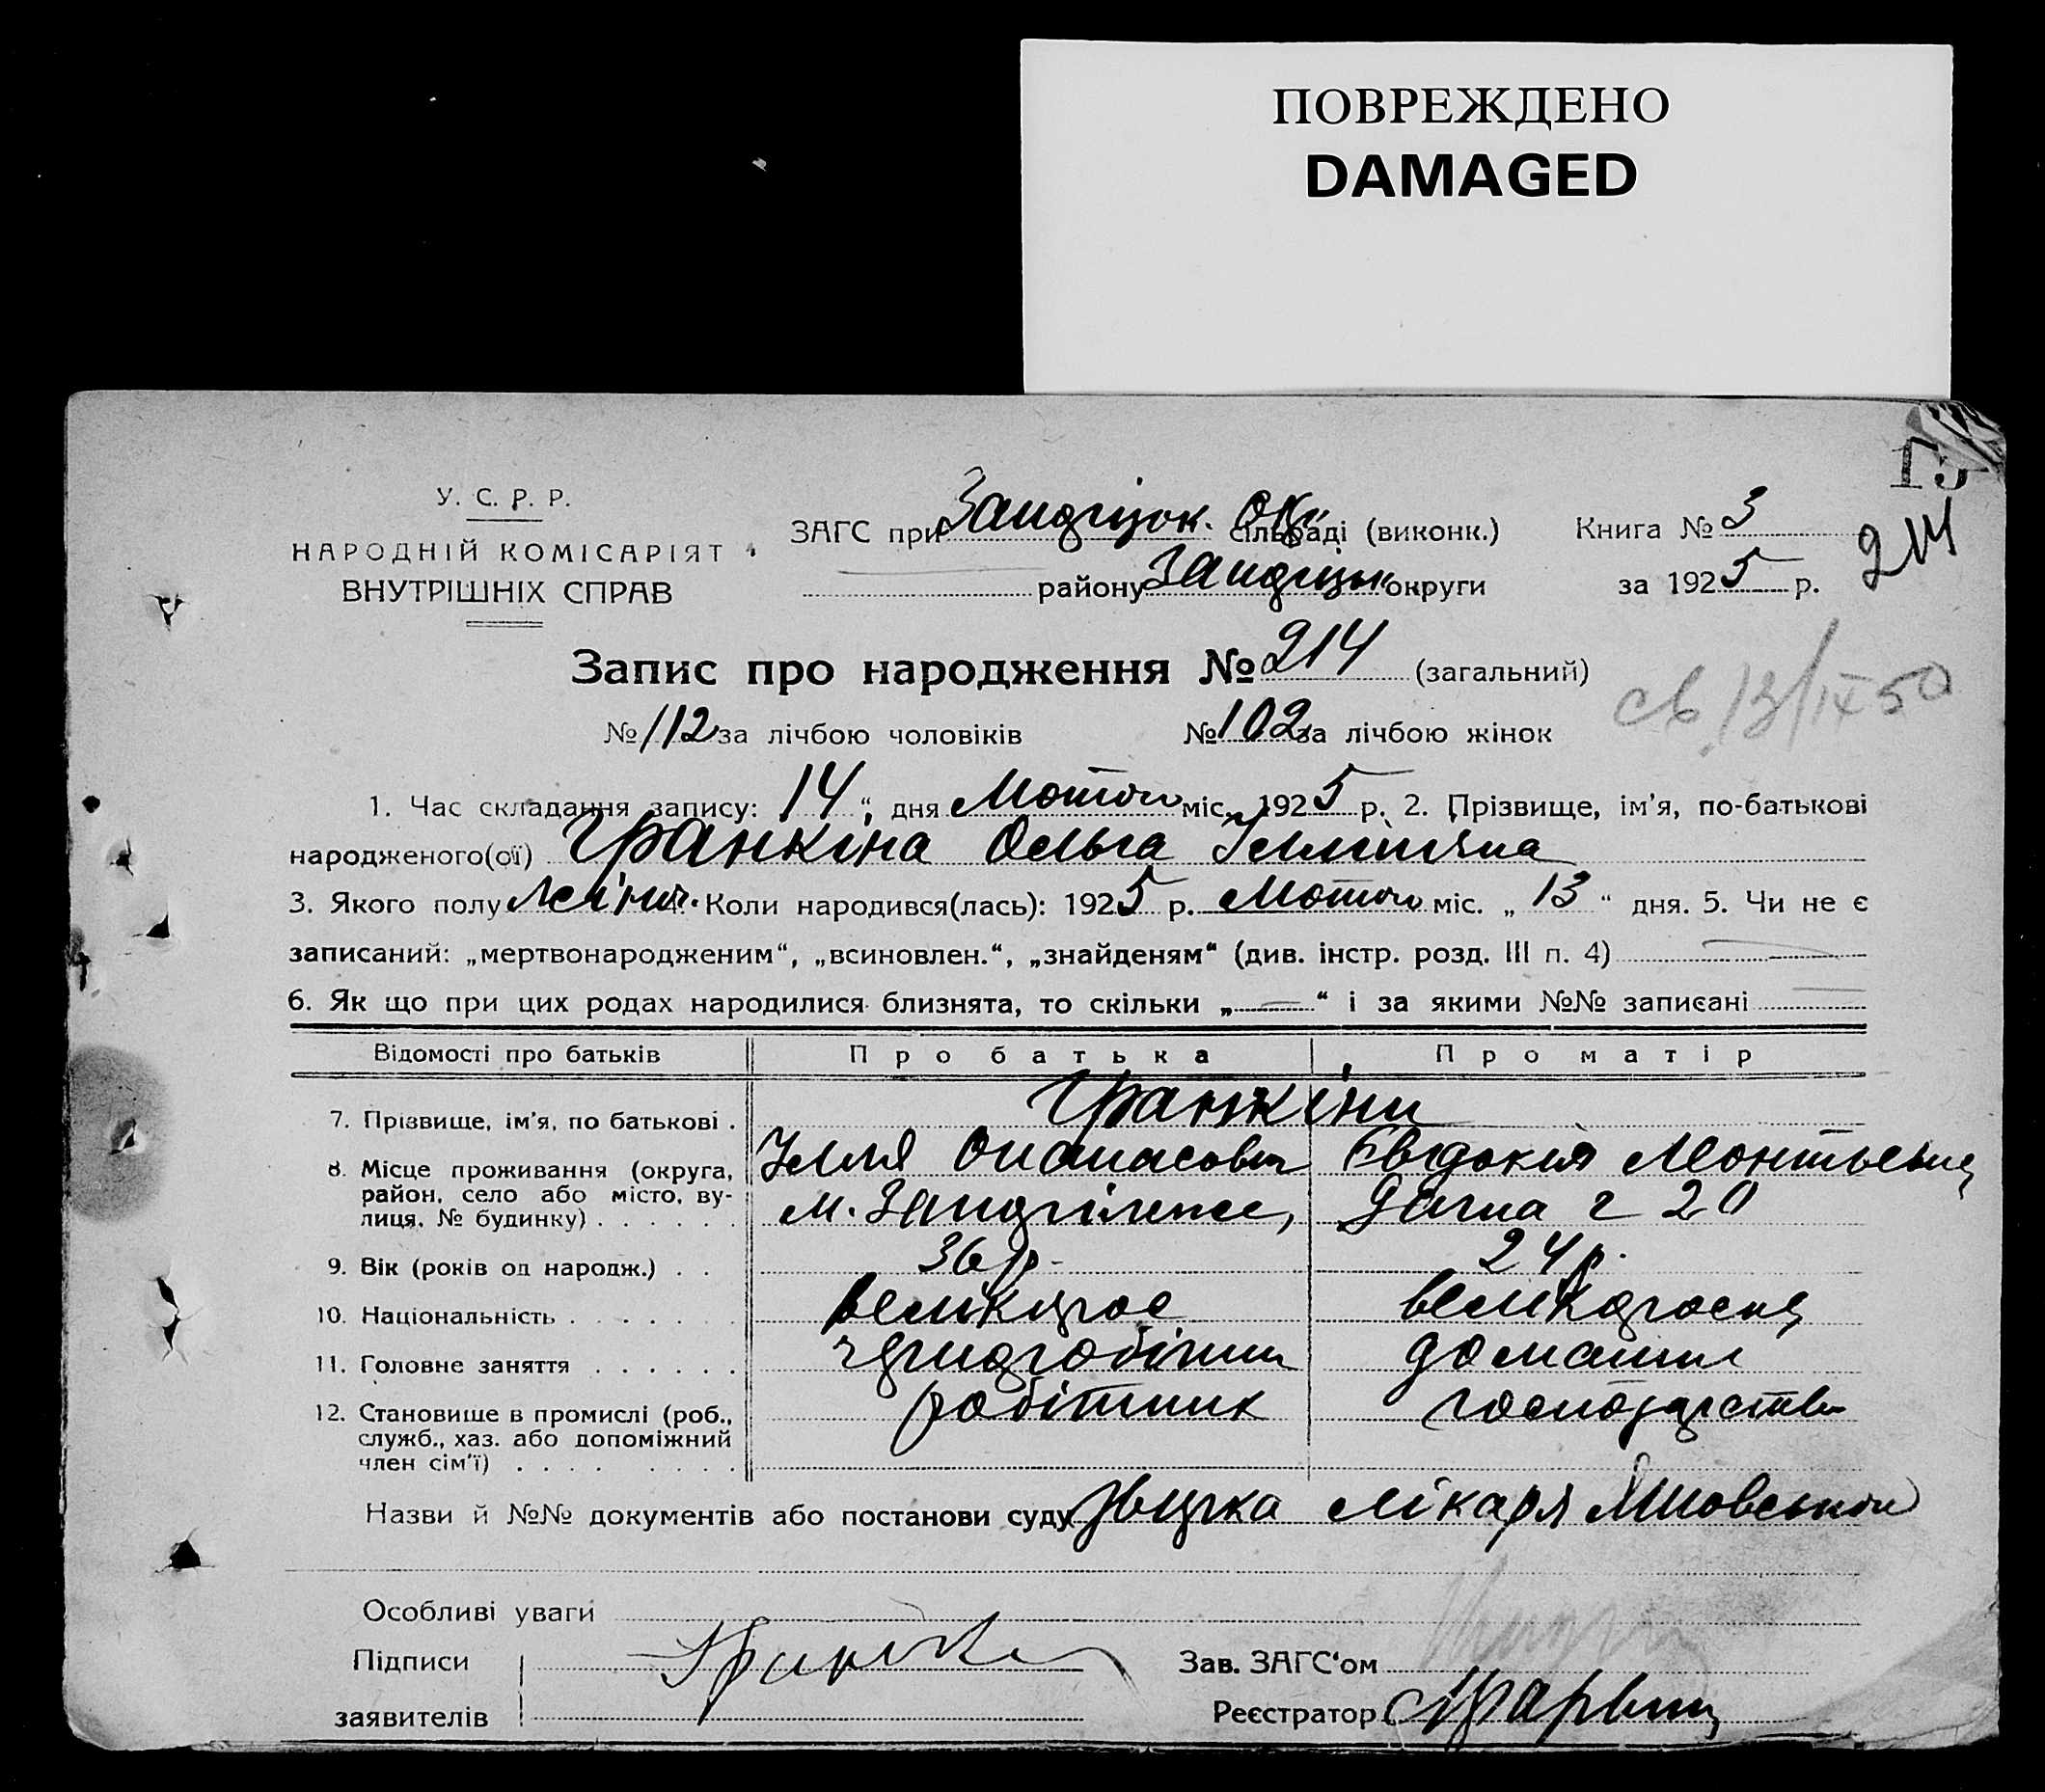 ПОВРЕЖДЕНО
DAMAGED
У. С. Р. Р.
НАРОДНІЙ КОМІСАРІЯТ
ВНУТРІШНІХ СПРАВ
ЗАГС при Запоріжок. Окр. сільраді (виконк.)
району Запоріжж округи
Книга № 3
за 1925 р.
15
214
Запис про народження № 214 (загальний)
св. 13/IX 50
№ 112 за лічбою чоловіків № 102 за лічбою жінок
1. Час складання запису: 14 “, дня Лютого міс. 1925 р. 2. Прізвище, ім'я, по-батькові
народженого(ої) Гранкіна Ольга Іллінічна
3. Якого полу жіноч. Коли народився(лась): 1925 р. Лютого міс. „ 13 “ дня. 5. Чи не є
записаний: „мертвонародженим“, „всиновлен.“, „знайденям“ (див. інстр. розд. III п. 4)
6. Як що при цих родах народилися близнята, то скільки „ — “ і за якими №№ записані —
Відомості про батьків Про батька Про матір
7. Прізвище, ім'я, по батькові . Гранкіни
Ілля Опанасович Євдокия Леонтьевна
8. Місце проживання (округа,
район, село або місто, ву-
лиця, № будинку) . . . . . . м. Запоріжже, 20
9. Вік (років од народж.) . . 36 р. 24 р.
10. Національність . . . . . . . великорос великороска
11. Головне заняття . . . . . . чорноробочий домашнє
12. Становище в промислі (роб., робітник господарство
служб., хаз. або допоміжний
член сім'ї) . . . . . . . .
Назви й №№ документів або постанови суду лікаря
Особливі уваги
Підписи
заявителів
Зав. ЗАГС'ом
Реєстратор